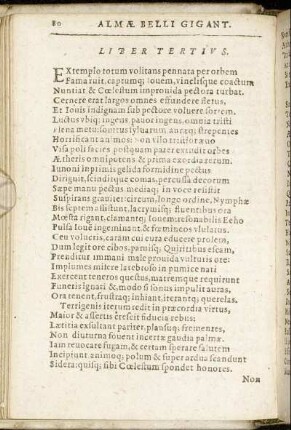 80 ALMÆ BELLI GIGANT.
LIBER TERTIVS.
EXtemplo totum volitans pennata per orbem
Fama ruit, captumq; Iouem, vinclisque coactum
Nuntiat & Cœlestum improuida pectora turbat.
Cernere erat largos omnes effundere fletus,
Et Ionis indignam sub pectore voluere sortem.
Luctus vbiq; ingens, pauor ingens, omnia tristi
plena metu: syluarum antra; strepentes
Horrificant animos: non viso tristior
Visa poli facies postquam pater orbes
Ætheris omnipotens & prima exordia rerum.
Iunoni inprimis gelida formidine pectus
Diriguit, scinditque comas, percussa decorum
Sæpe manu pectus mediaq; in voce resistit
Suspirans grauiter: circum, longo ordine, Nymphæ
Bis septem assistunt, lacrymisq; fluentibus ora
Mœsta rigant, clamantq; Iouem: resonabilis Echo
Pulsa Iouē ingeminant, & fœmineos vlulatus.
Ceu volucris, caram cui cura educere prolem,
Dum legit ore cibos, parnisq; Quiritibus escam,
Prenditur immani male prouida vulturis ore:
Impiumes misere latebroso in pumice nati
Exercent teneros questus, matremque requirunt
Funeris ignari &, modo si sonus impulit auras,
Ora tenent, frustraq; inhiant, iterantq; querelas.
Terrigenis iterum redit in præcordia virtus,
Maior & assertis crescit fiducia rebus:
Lætitia exsultant pariter, plausuq; frementes,
Non diuturna fouent incertæ gaudia palmæ.
Iam reuocare fugam, & certam sperare salutem
Incipiunt animoq; polum & super ardua scandunt
Sidera: quisq; sibi Cœlestum spondet honores.
Non